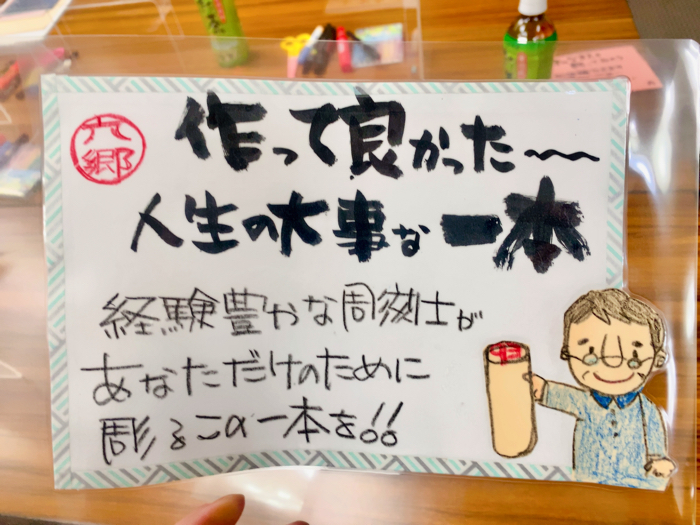 六郷
作って良かった〜
人生の大事な一本
経験豊かな周刻士が
あなただけのために
彫るこの一本を!!